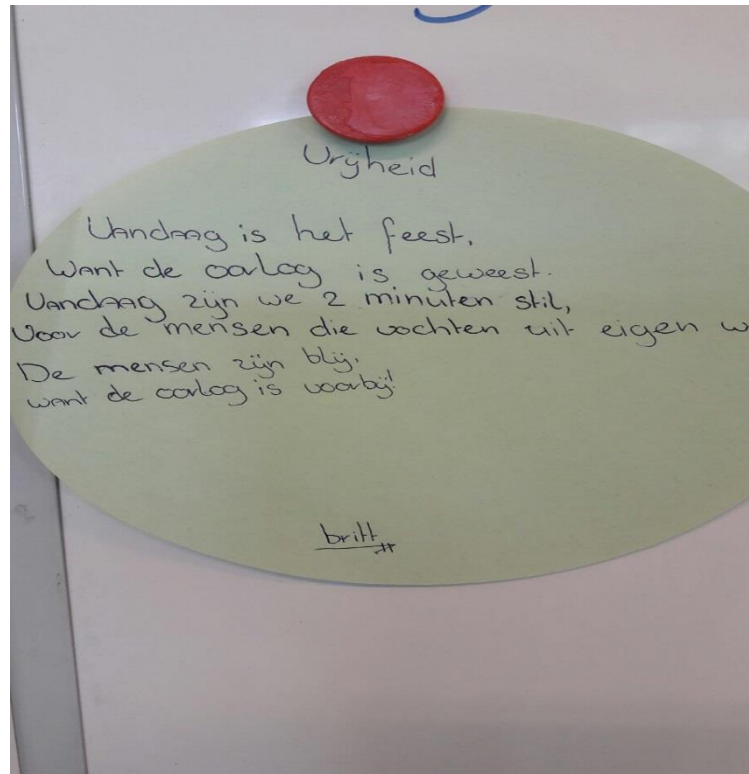 Vrijheid
Vandaag is het feest,
Want de oorlog is geweest.
Vandaag zijn we 2 minuten stil,
Voor de mensen die vochten uit eigen w
De mensen zijn blij,
want de oorlog is voorbij!
britt